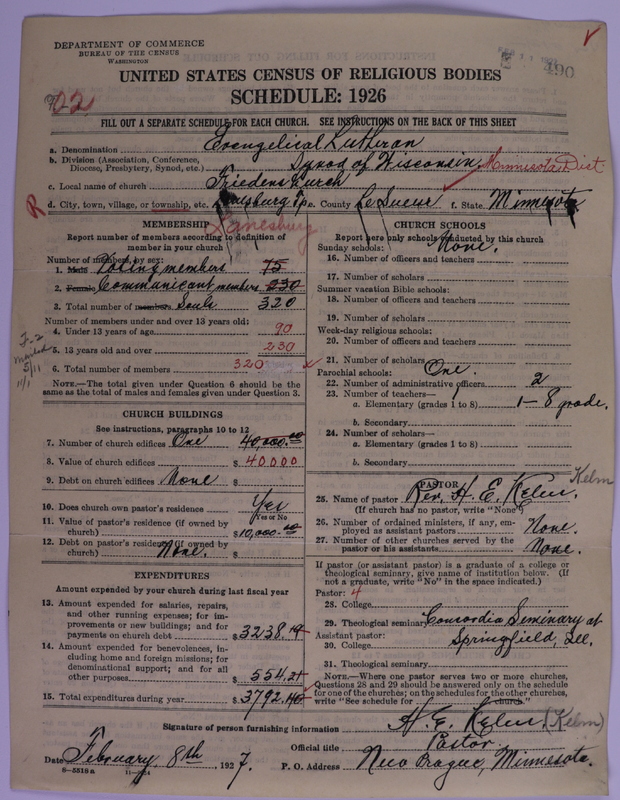 DEPARTMENT OF COMMERCE
BUREAU OF THE CENSUS
WASHINGTON
UNITED STATES CENSUS OF RELIGIOUS BODIES
SCHEDULE: 1926
FILL OUT A SEPARATE SCHEDULE FOR EACH CHURCH. SEE INSTRUCTIONS ON THE BACK OF THIS SHEET
a. Denomination Evangelical Lutheran
b. Division (Association, Conference, Diocese, Presbytery, Synod, etc.) Synod of Wisconsin Minnesota Dist
c. Local name of church Friedens Kirch
d. City, town, village, or township, etc. e. County Le Sueur f. State Minnesota
Lanesburg
MEMBERSHIP
Report number of members according to definition of
member in your church
Number of members, by sex:
1. Male Voting members 75
2. Female Communicant members 230
3. Total number of members Souls 320
Number of members under and over 13 years old:
4. Under 13 years of age 90
5. 13 years old and over 230
6. Total number of members 320
NOTE.—The total given under Question 6 should be the
same as the total of males and females given under Question 3.
CHURCH BUILDINGS
See instructions, paragraphs 10 to 12
7. Number of church edifices One 40,000.00
8. Value of church edifices $ 40,000
9. Debt on church edifices None $
10. Does church own pastor's residence Yes
Yes or No
11. Value of pastor's residence (if owned by
church) $10,000.00
12. Debt on pastor's residence (if owned by
church) None. $
EXPENDITURES
Amount expended by your church during last fiscal year
13. Amount expended for salaries, repairs,
and other running expenses; for im-
provements or new buildings; and for
payments on church debt $3238.19
14. Amount expended for benevolences, in-
cluding home and foreign missions; for
denominational support; and for all
other purposes $ 554.21
15. Total expenditures during year $3792.40
CHURCH SCHOOLS
Report here only schools conducted by this church
Sunday schools: None.
16. Number of officers and teachers
17. Number of scholars
Summer vacation Bible schools:
18. Number of officers and teachers
19. Number of scholars
Week-day religious schools:
20. Number of officers and teachers
21. Number of scholars
Parochial schools: One.
22. Number of administrative officers 2
23. Number of teachers—
a. Elementary (grades 1 to 8) 1-8 grade.
b. Secondary
24. Number of scholars—
a. Elementary (grades 1 to 8)
b. Secondary
PASTOR
Kelm
25. Name of pastor Rev. H. E. Kelm.
(If church has no pastor, write "None")
26. Number of ordained ministers, if any, em-
ployed as assistant pastors None.
27. Number of other churches served by the
pastor or his assistants None.
If pastor (or assistant pastor) is a graduate of a college or
theological seminary, give name of institution below. (If
not a graduate, write "No" in the space indicated.)
Pastor: 4
28. College
29. Theological seminary Concordia Seminary at
Assistant pastor: Springfield, Ill.
30. College
31. Theological seminary
NOTE.—Where one pastor serves two or more churches,
Questions 28 and 29 should be answered only on the schedule
for one of the churches; on the schedules for the other churches,
write "See schedule for church."
Signature of person furnishing information H. E. Kelm (Kelm)
Official title Pastor
Date February 8th, 1927. P. O. Address New Prague, Minnesota.
6—5518a